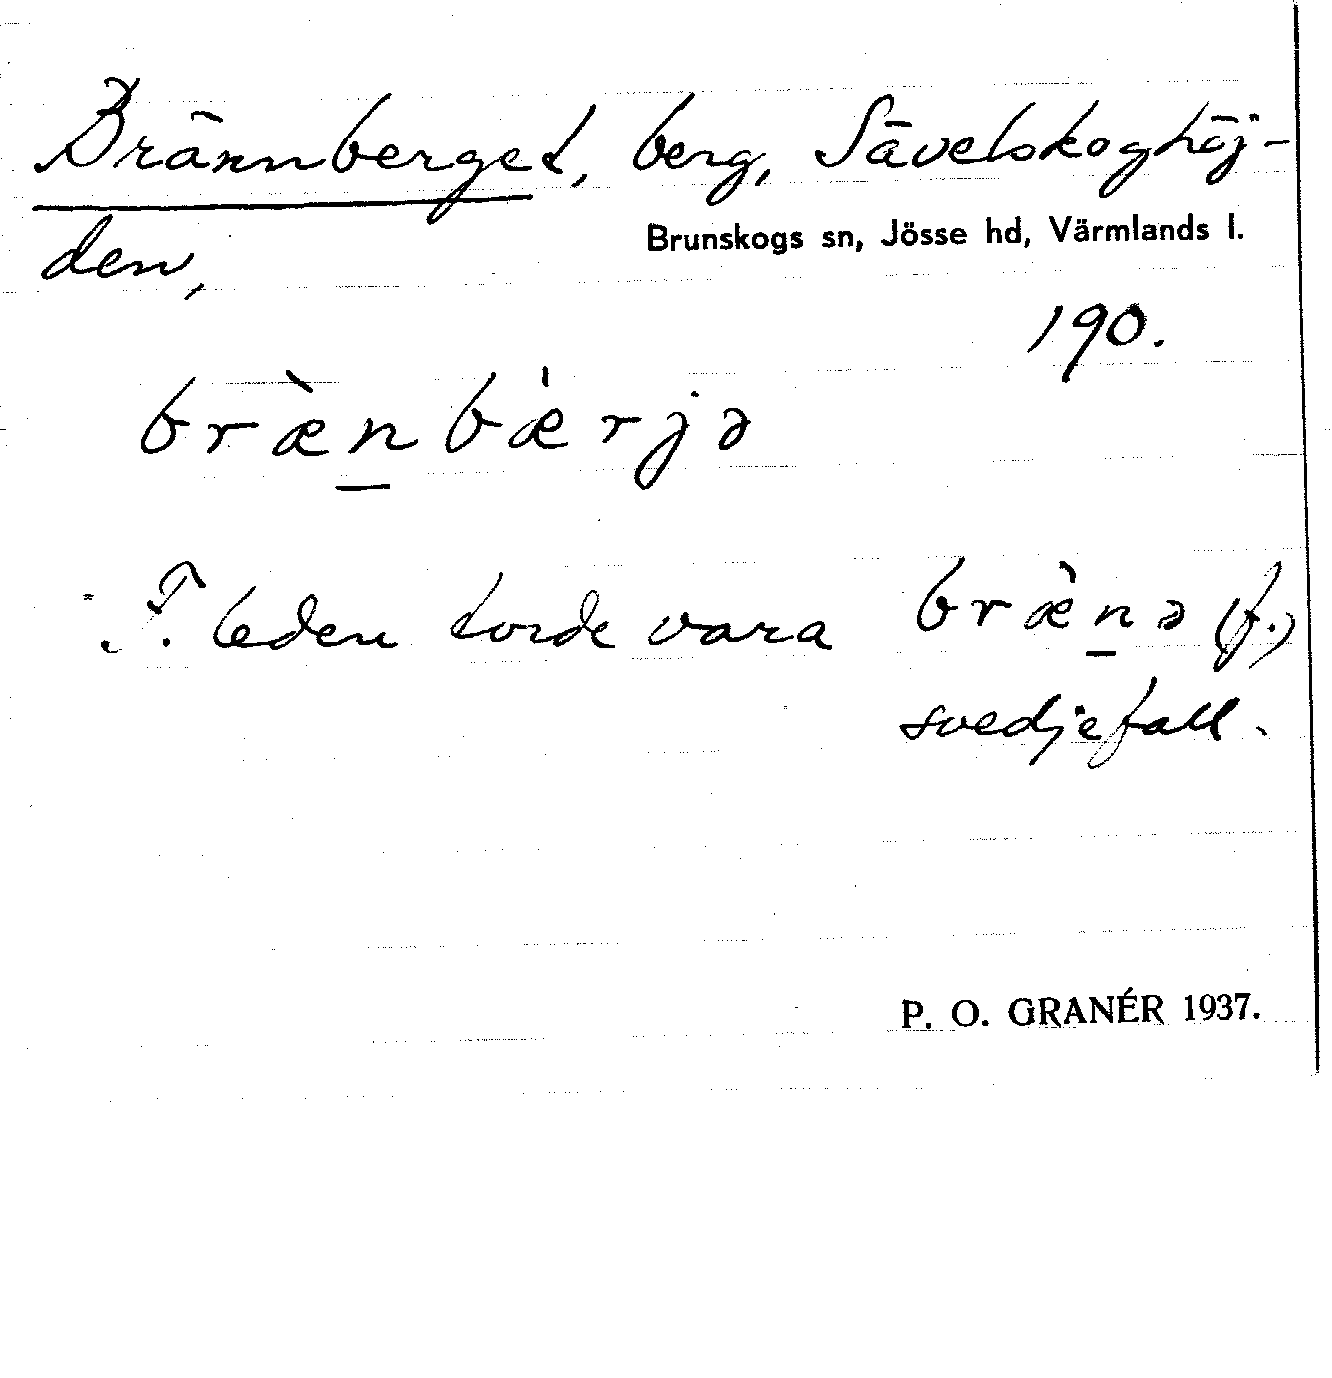 Brännberget, berg, Sävelskoghöj-
den,
Brunskogs sn, Jösse hd, Värmlands l.
190.
bræ̀n̲bæ̍rjə
F. leden torde vara bræ̀n̲ə (f.)
svedjefall.
P. O. GRANÉR 1937.